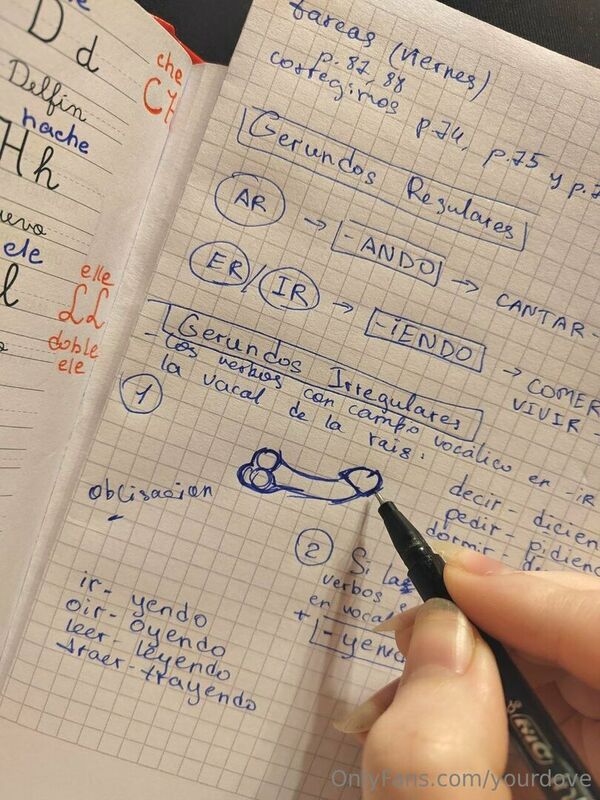 D d
Delfin
hache
Hh
ele
che
elle
LL
doble
ele
tareas (viernes)
p. 87, 88
corregimos p.74, p.75 y p.7
Gerundos Regulares
AR → -ANDO → CANTAR -
ER / IR → -iENDO → COMER
VIVIR -
Gerundos Irregulares
1
- Los verbos con campo vocálico en -iR
la vocal de la rais:
decir - dicien
pedir - pidien
dormir - d
obligacion
2
Si las
verbos
en vocal
+ - yen
ir - yendo
oir - oyendo
leer - leyendo
traer - trayendo
BIC
OnlyFans.com/yourdove